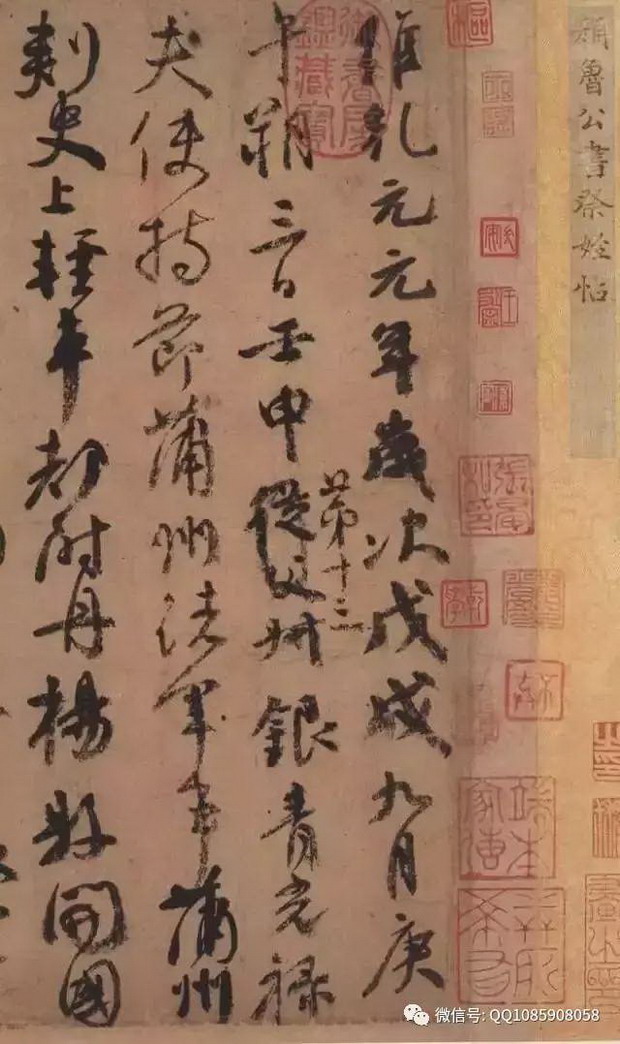 顏魯公書祭姪帖
維乾元元年歲次戊戌九月庚
午朔三日壬申從父叔銀青光祿
第十三
夫使持節蒲州諸軍事蒲州
刺史上輕車都尉丹楊縣開國
御書房鑑藏寶
微信号: QQ1085908058